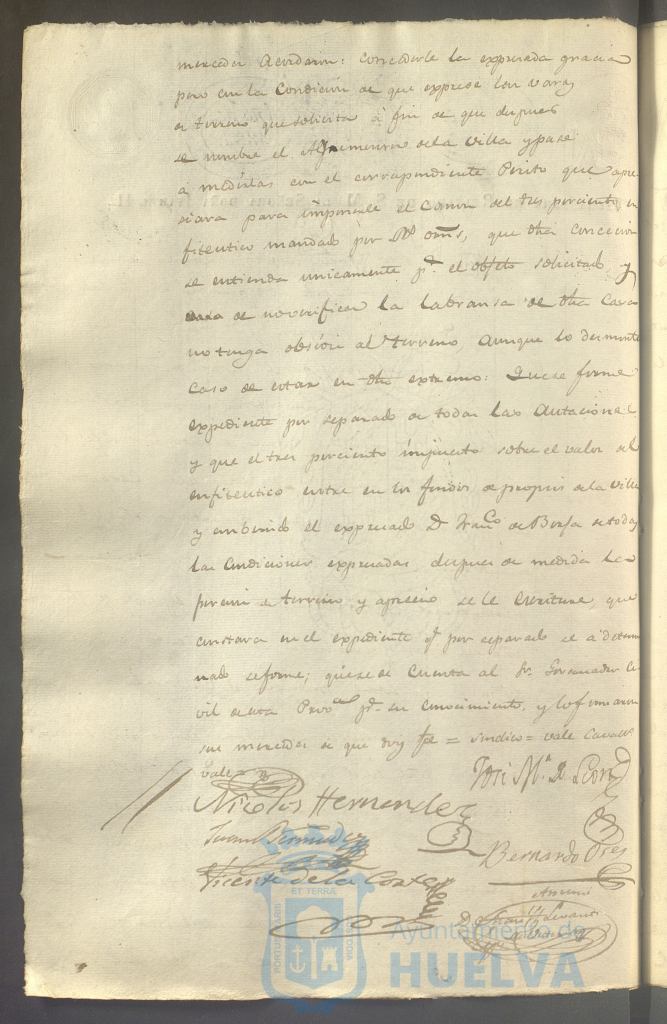 mercedes Acordaron: concederle la expresada gracia
pero con la Condicion de que exprese las varas
de terreno que solicita à fin de que despues
se nombre el Agrimensor de la villa y pase
a medirlas con el correspondiente Perito que apre
ciara para imponerle el Canon del tres porciento en
fiteutico mandado por Rs. oms, que dha concecion
se entienda unicamente pª. el objeto solicitado, y
de no verificar la labransa de dha
no tenga obsion al terreno Aunque lo desmonte
Caso de estar en dho extremo: Que se forme
expediente por separado de todas las Autaciones
y que el tres porciento impuesto sobre el valor del
enfiteutico entre en los fondos de propios de la villa
y el expresado D. Franco de de todas
las Condiciones expresadas, despues de medida la
porcion de terreno y aprecio se le Escriture, que
constara en el expediente q.e por separado se a determi
nado se forme; que se de Cuenta al Sr. Governador Ci
vil de esta Provca pª. su Conocimiento, y lo firmaron
sus mercedes de que doy fee = sindico = vale
vale
José Mª. de Leon
Nicolas Hernandez
Juan Bermudez
Bernardo
Vicente de la Corte
Antemi
PORTUS MARIS
ET TERRA
CUSTODIA
Ayuntamiento de
HUELVA